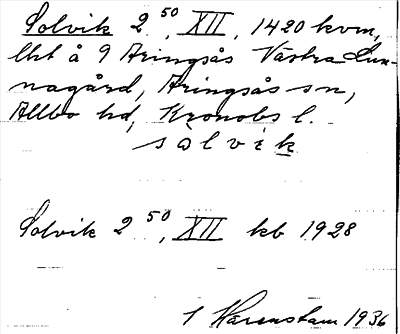 Solvik 2⁵⁰, XII, 1420 kvm,
lht å 9 Aringsås Västra Lun-
nagård, Aringsås sn,
Allbo hd, Kronobs l.
solvik
Solvik 2⁵⁰, XII kb 1928
1 Härenstam 1936